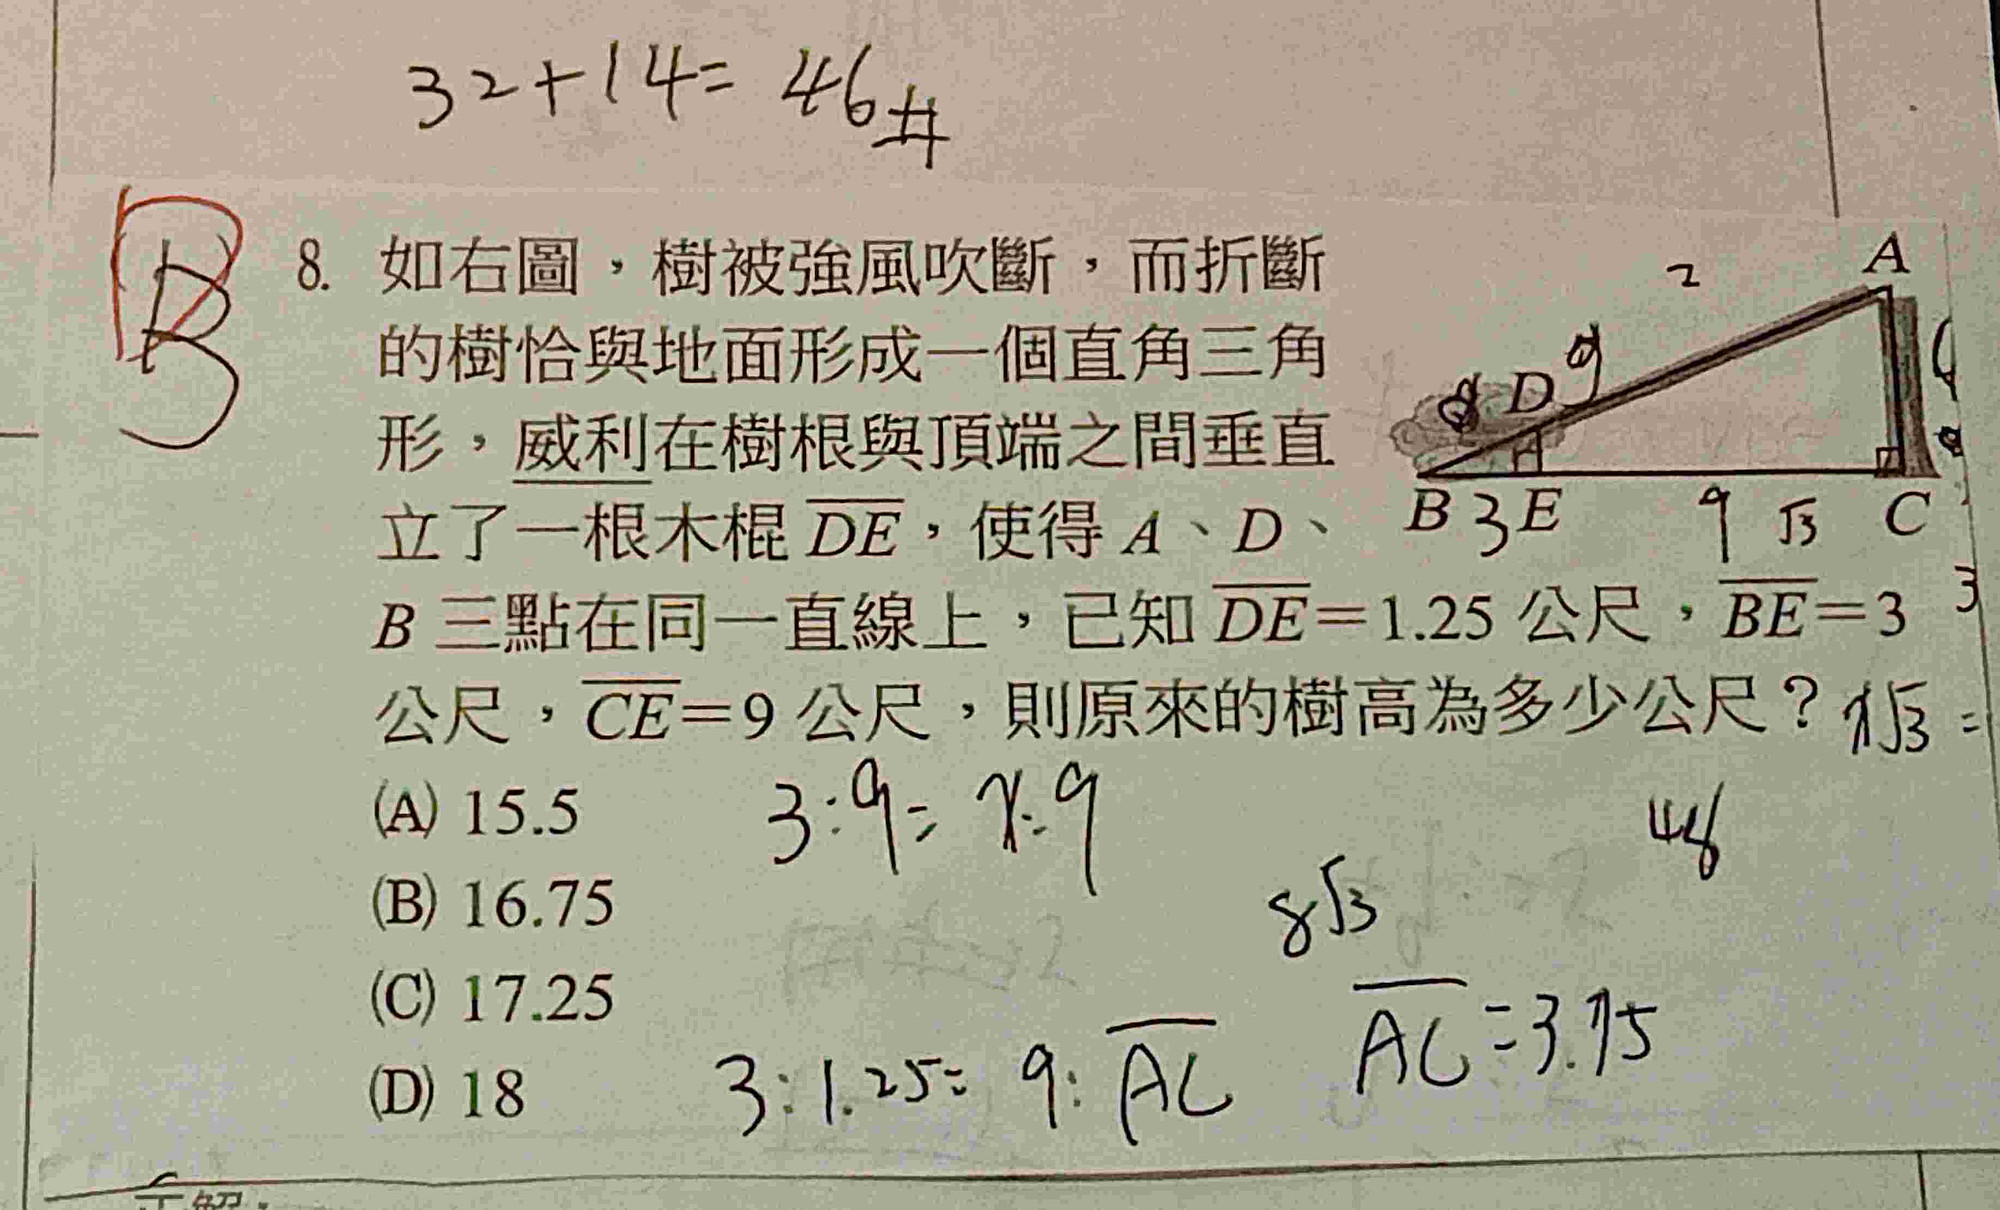 32+14=46#
B
8. 如右圖,樹被強風吹斷,而折斷
的樹恰與地面形成一個直角三角
形,威利在樹根與頂端之間垂直
立了一根木棍DE,使得A、D、
B三點在同一直線上,已知DE=1.25公尺,BE=3
公尺,CE=9公尺,則原來的樹高為多少公尺?
(A) 15.5
(B) 16.75
(C) 17.25
(D) 18
2
A
D
B 3 E 9 √3 C
3
3:9=x:9
48
8√3
3:1.25=9:AC
AC=3.75